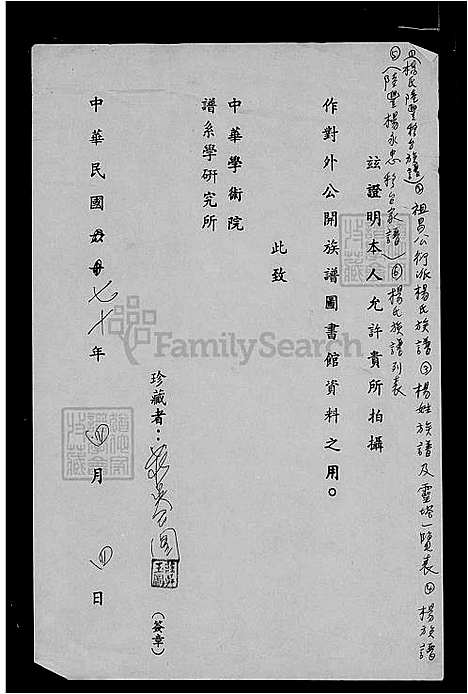 ①楊氏陸豐移台族譜②祖昌公衍派楊氏族譜③楊姓族譜及靈塔一覽表④楊族譜
⑤(陸豐楊永忠移台家譜)⑥楊氏族譜列表
玆證明本人允許貴所拍攝
作對外公開族譜圖書館資料之用。
此致
中華學術院
譜系學研究所
珍藏者：
(簽章)
中華民國七十年 四月 四日
FamilySearch